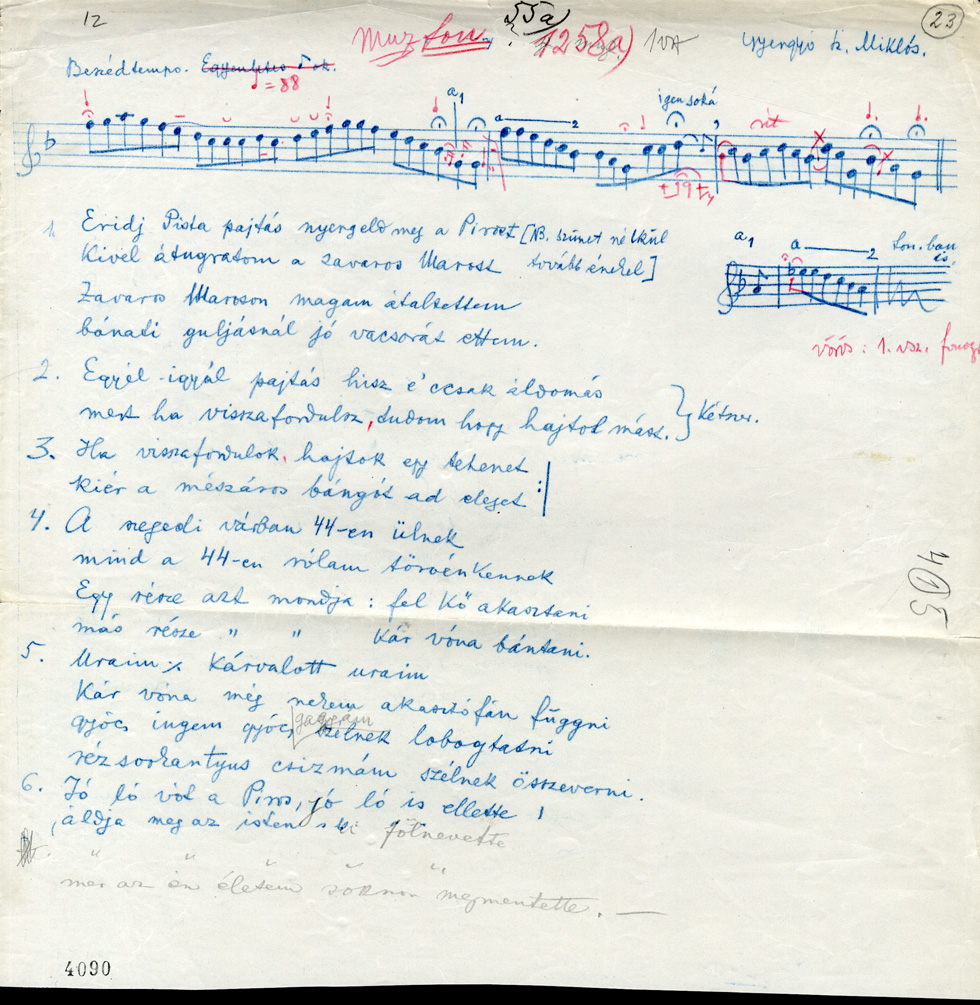 12
55a)
23
Muzfon.
1258a)
IVA
Gyengyó k. Miklós.
Beszédtempo.
= 88
a1
a 2
igen soká
rit
1. Eridj Pista pajtás nyergeld meg a Pirost [NB. szünet nélkül
Kivel átugratom a zavaros Marost tovább énekel]
Zavaros Maroson magam általtettem
bánadi guljásnál jó vacsorát ettem.
a1
a 2
fon. ban
is.
vörös: 1. vsz.
2. Egyél-igyál pajtás hisz é' ccsak áldomás
mert ha visszafordulsz, tudom hogy hajtol mást.
Kétszer.
3. Ha visszafordulok, hajtok egy tehenet
kiér a mészáros bángót ad eleget :|
4. A szegedi várban 44-en ülnek
mind a 44-en rólam törvénkennek
Egy része azt mondja : fel Kő akasztani
más része " " Kár vóna bántani.
5. Uraim x Kárvalott uraim
Kár vóna még nekem akasztófán függni
gyócs ingem gyócs gagyám szélnek lobogtatni
rézsorkantyus csizmám szélnek összeverni.
6. Jó ló vót a Piros, jó ló is ellette
áldja meg az isten ki fölnevette
" " " " "
mer az én életem sokszor megmentette. —
4090